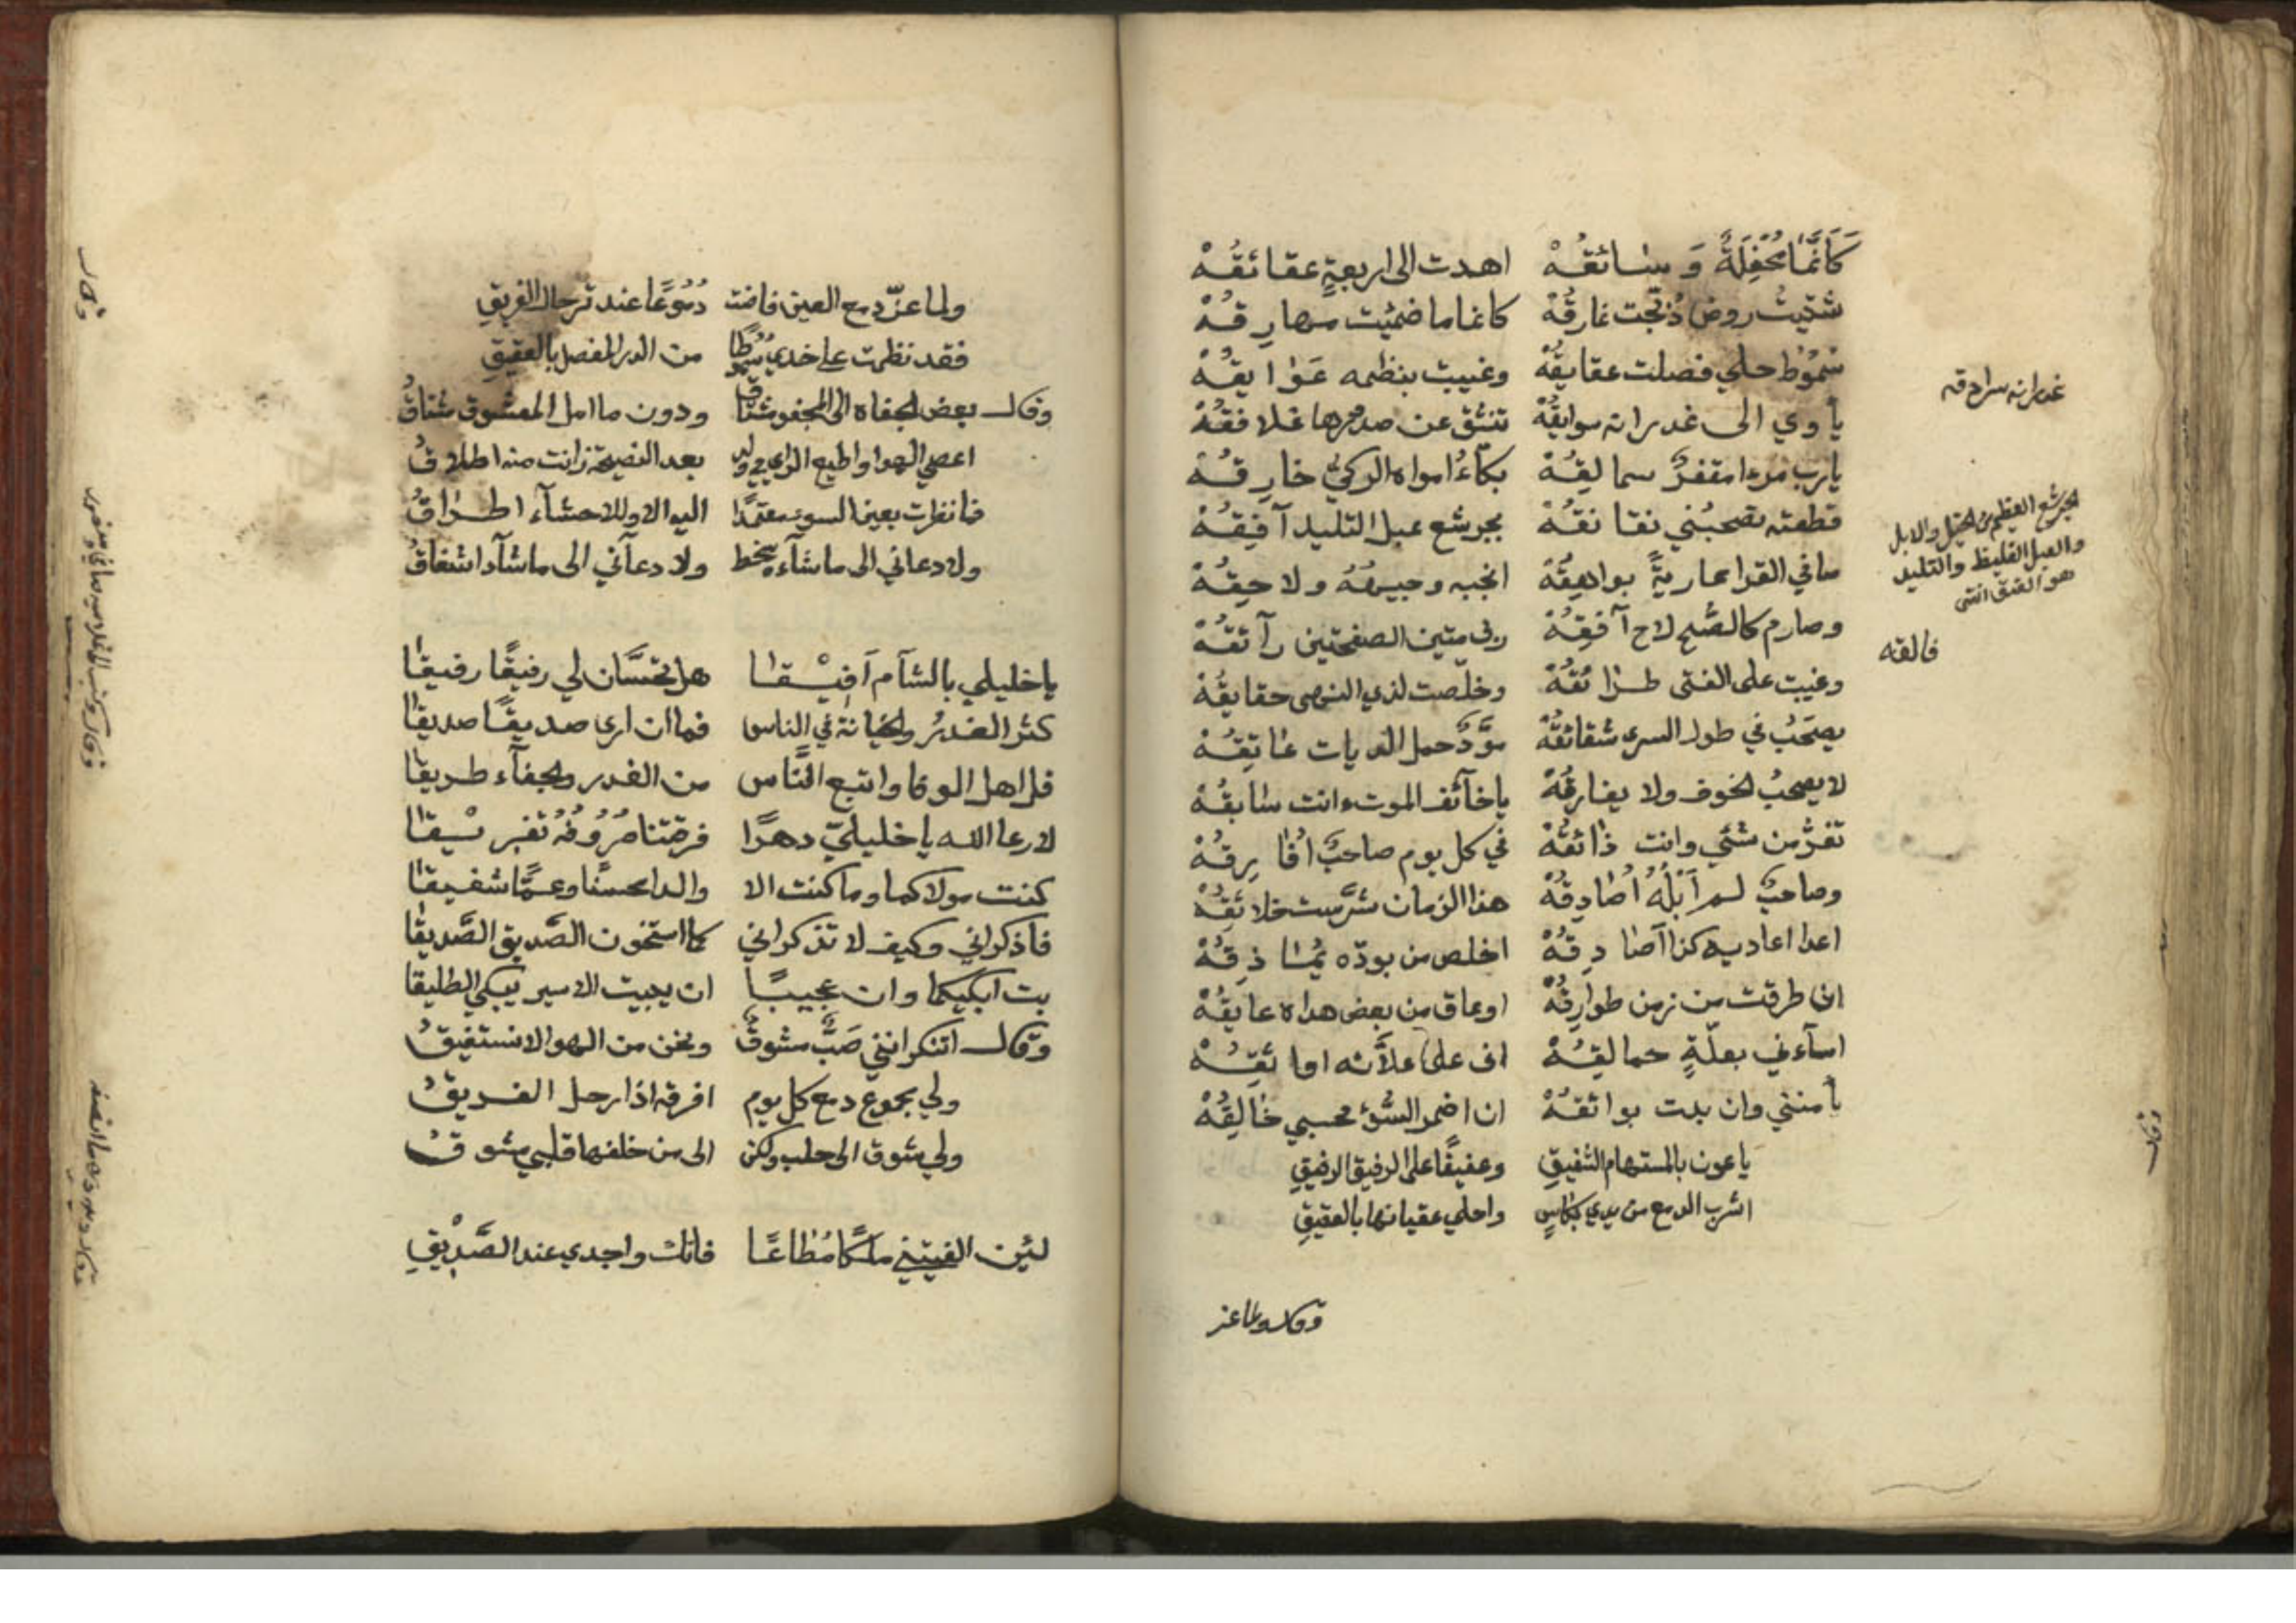 كَأَنَّمَا مُحْفِلَةً وَسائقُهْ اهدت الى اربعةٍ عقائقُهْ
شتيتُ روض دُبّجت نمارقُهْ كانما ما ضمنت مهارقُهْ
سُمُوْط حلي فصلت عقايقُهْ وغيبت بنظمه عَوَايقُهْ
يأوي الى غدرانه سوابقُهْ تنشق عن صدورها غلافقُهْ
يارب مرءا مقفرٌ سمالقُهْ بكآءُ امواه الركيّ خارقُهْ
قطعته تصحبُني نقانقُهْ بجرشع عبل التليد آفقُهْ
صافي القرا عاريةً بواهقُهْ انجبه وجيهُهُ ولاحقُهْ
وصارم كالصُّبح لاح آفقُهْ رف متين الصفحتين رآئقُهْ
وغيبت على الفتى طرائقُهْ وخلّصت لذي النهى حقايقُهْ
يصحَبُ في طول السرى شقائقُهْ موّدٌ حمل الديات عاتقُهْ
لا يصحبُ الخوف ولا يفارقُهْ ياخآئف الموت وانت سابقُهْ
تفرُّ من شئي وانت ذائقُهْ في كل يوم صاحبٌ اُفارِقُهْ
وصاحبٌ لم اَبْلُهُ اُصادِقُهْ هذا الزمان شرَّست خلائقُهْ
اعدا اعاديه كذا آصادِقُهْ اخلص من بودّه يُماذِقُهْ
ان طرقت من زمن طوارقُهْ اوعاق من بعض هداه عايقُهْ
اسآءني بعلّةٍ حمالقُهْ انى على علاّته اوائقُهْ
يأمنني وان بدت بوائقُهْ ان اضمر السُّؤ فحسبي خالِقُهْ
ياعون بالمستهام الشفيقِ وعفيفًا على الرفيق الرفيقِ
اشرب الدمع من يدي بكاسٍ واحلي عقيانها بالعقيقِ
وقال ولما عز
غدرانه سرادقه
الجرشع العظيم من الخيل والابل
والعبل الغليظ والتليد
هو العنق انتهى
فالقه
وقال
ولما عزّ دمع العين فاضت دُمُوعًا عند ترحال الفريقِ
فقد نظمت على خديّ سُمُطًا من الدر المفصل بالعقيقِ
وقال بعض الجفاه الى المجفو شتاقُ ودون ما امل المعشوق شتاقُ
اعصي الهوا واطيع الراي في ولدٍ بعد النصيحة زانت منه اخلاقُ
فما نظرت بعين السوء معتمدًا اليه الا وللاحشآء اطراقُ
ولا دعاني الى ما شآء بسخط ولا دعآني الى ما شآء اشفاقُ
يا خليلي بالشآم اَفِيْقا هل تحسَّان لي رفيقًا رفيقا
كثر الغدرُ والخيانة في الناس فما ان ارى صديقًا صديقا
قل اهل الوفا واتبع النَّاس من الغدر والجفآء طريقا
لا رعا الله يا خليليّ دهرًا فرقتنا صُرُوفُهُ تفريْقا
كنت مولاكما وما كنت الا والدا محسنًا وعمًّا شفيقا
فاذكراني وكيف لا تذكراني كما استخون الصَّديق الصَّديقا
بت ابكيكما وان عجيبًا ان يبيت الاسير يبكي الطليقا
وقال اتنكر انني صَبٌّ مشوقٌ ونحن من الهوا لا نستفيقُ
ولي مجموع دمع كل يوم افرقه اذا رحل الفريقُ
ولي شوق الى حلب ولكن الى من خلفها قلبي مشوقُ
لئن الفيتني ملكًا مُطاعًا فانك واجدي عند الصَّدِيْقِ
وقال